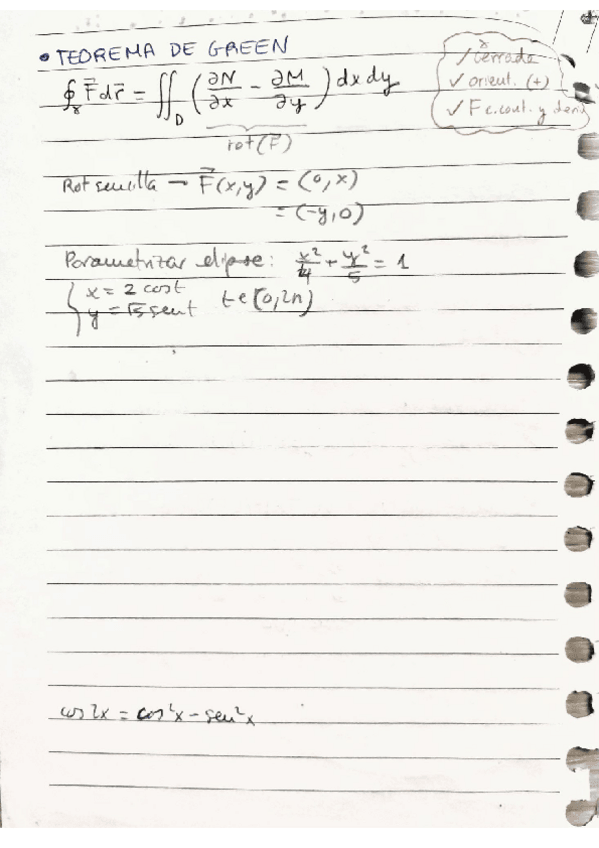 • TEOREMA DE GREEN
∮_γ F⃗ dr⃗ = ∬_D (∂N/∂x - ∂M/∂y) dx dy
rot(F⃗)
γ cerrada
✓ orient. (+)
✓ F c. cont. y deriv
Rot sencilla → F⃗(x,y) = (0, x)
= (-y, 0)
Parametrizar elipse: x²/4 + y²/5 = 1
{ x = 2 cos t
y = √5 sen t t ∈ [0, 2π)
cos 2x = cos²x - sen²x